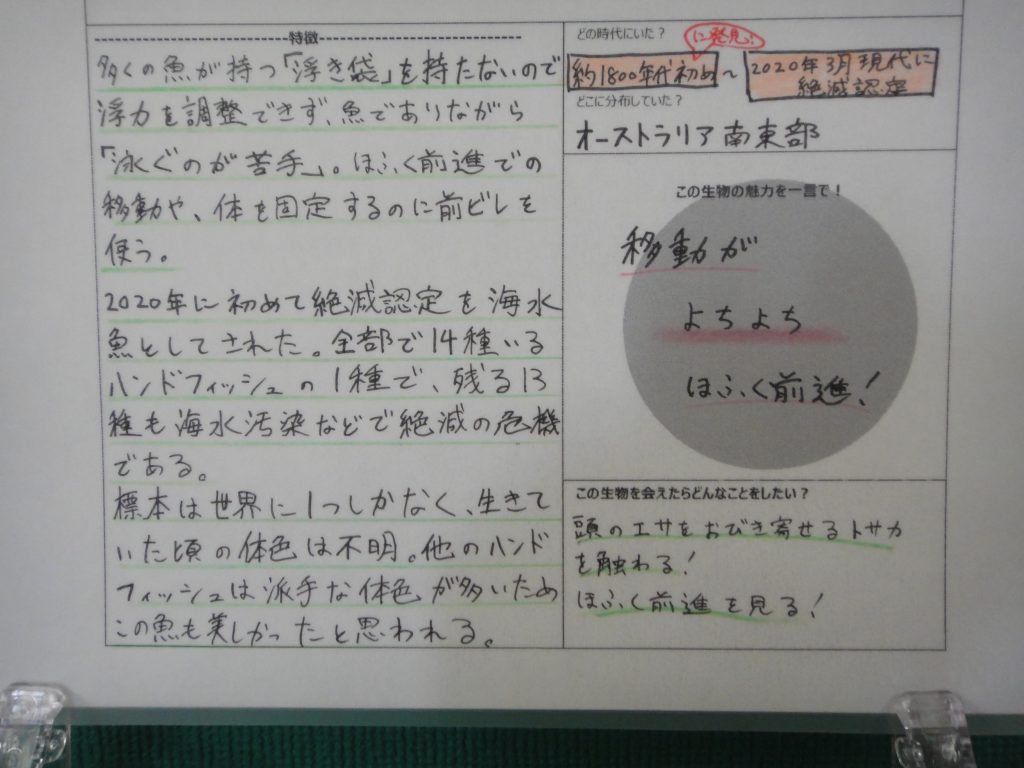 特徴
多くの魚が持つ「浮き袋」を持たないので
浮力を調整できず、魚でありながら
「泳ぐのが苦手」。ほふく前進での
移動や、体を固定するのに前ビレを
使う。
2020年に初めて絶滅認定を海水
魚としてされた。全部で14種いる
ハンドフィッシュの1種で、残る13
種も海水汚染などで絶滅の危機
である。
標本は世界に1つしかなく、生きて
いた頃の体色は不明。他のハンド
フィッシュは派手な体色が多いため
この魚も美しかったと思われる。
どの時代にいた?
に発見!
約1800年代初め〜
2020年3月現代に
絶滅認定
どこに分布していた?
オーストラリア南東部
この生物の魅力を一言で!
移動が
よちよち
ほふく前進!
この生物を会えたらどんなことをしたい?
頭のエサをおびき寄せるトサカ
を触わる!
ほふく前進を見る!